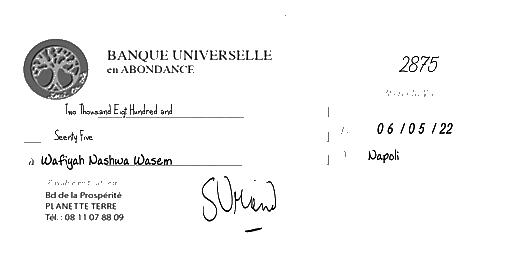 BANQUE UNIVERSELLE
en ABONDANCE
2875
Two Thousand Eigt Hundred and
Seenty Five
06/05/22
à Wafiyah Nashwa Wasem
Napoli
Bd de la Prospérité
PLANETTE TERRE
Tél. : 08 11 07 88 09